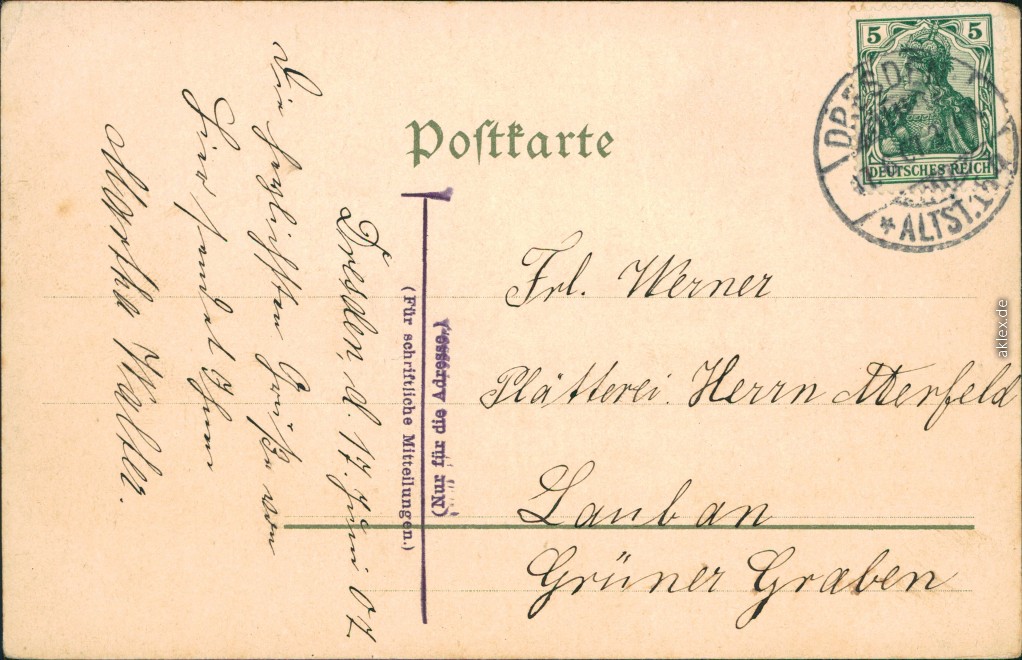 Postkarte
5 5
DEUTSCHES REICH
DRESDEN
* ALTST. 1
(Für schriftliche Mitteilungen.)
(Nur für die Adresse.)
Dresden, d. 17. Juni 07
Die herzlichsten Grüße von
hier sendet Ihnen
Martha Walter.
Frl. Werner
Plätterei. Herrn Merfeld
Lauban
Grüner Graben
aklex.de